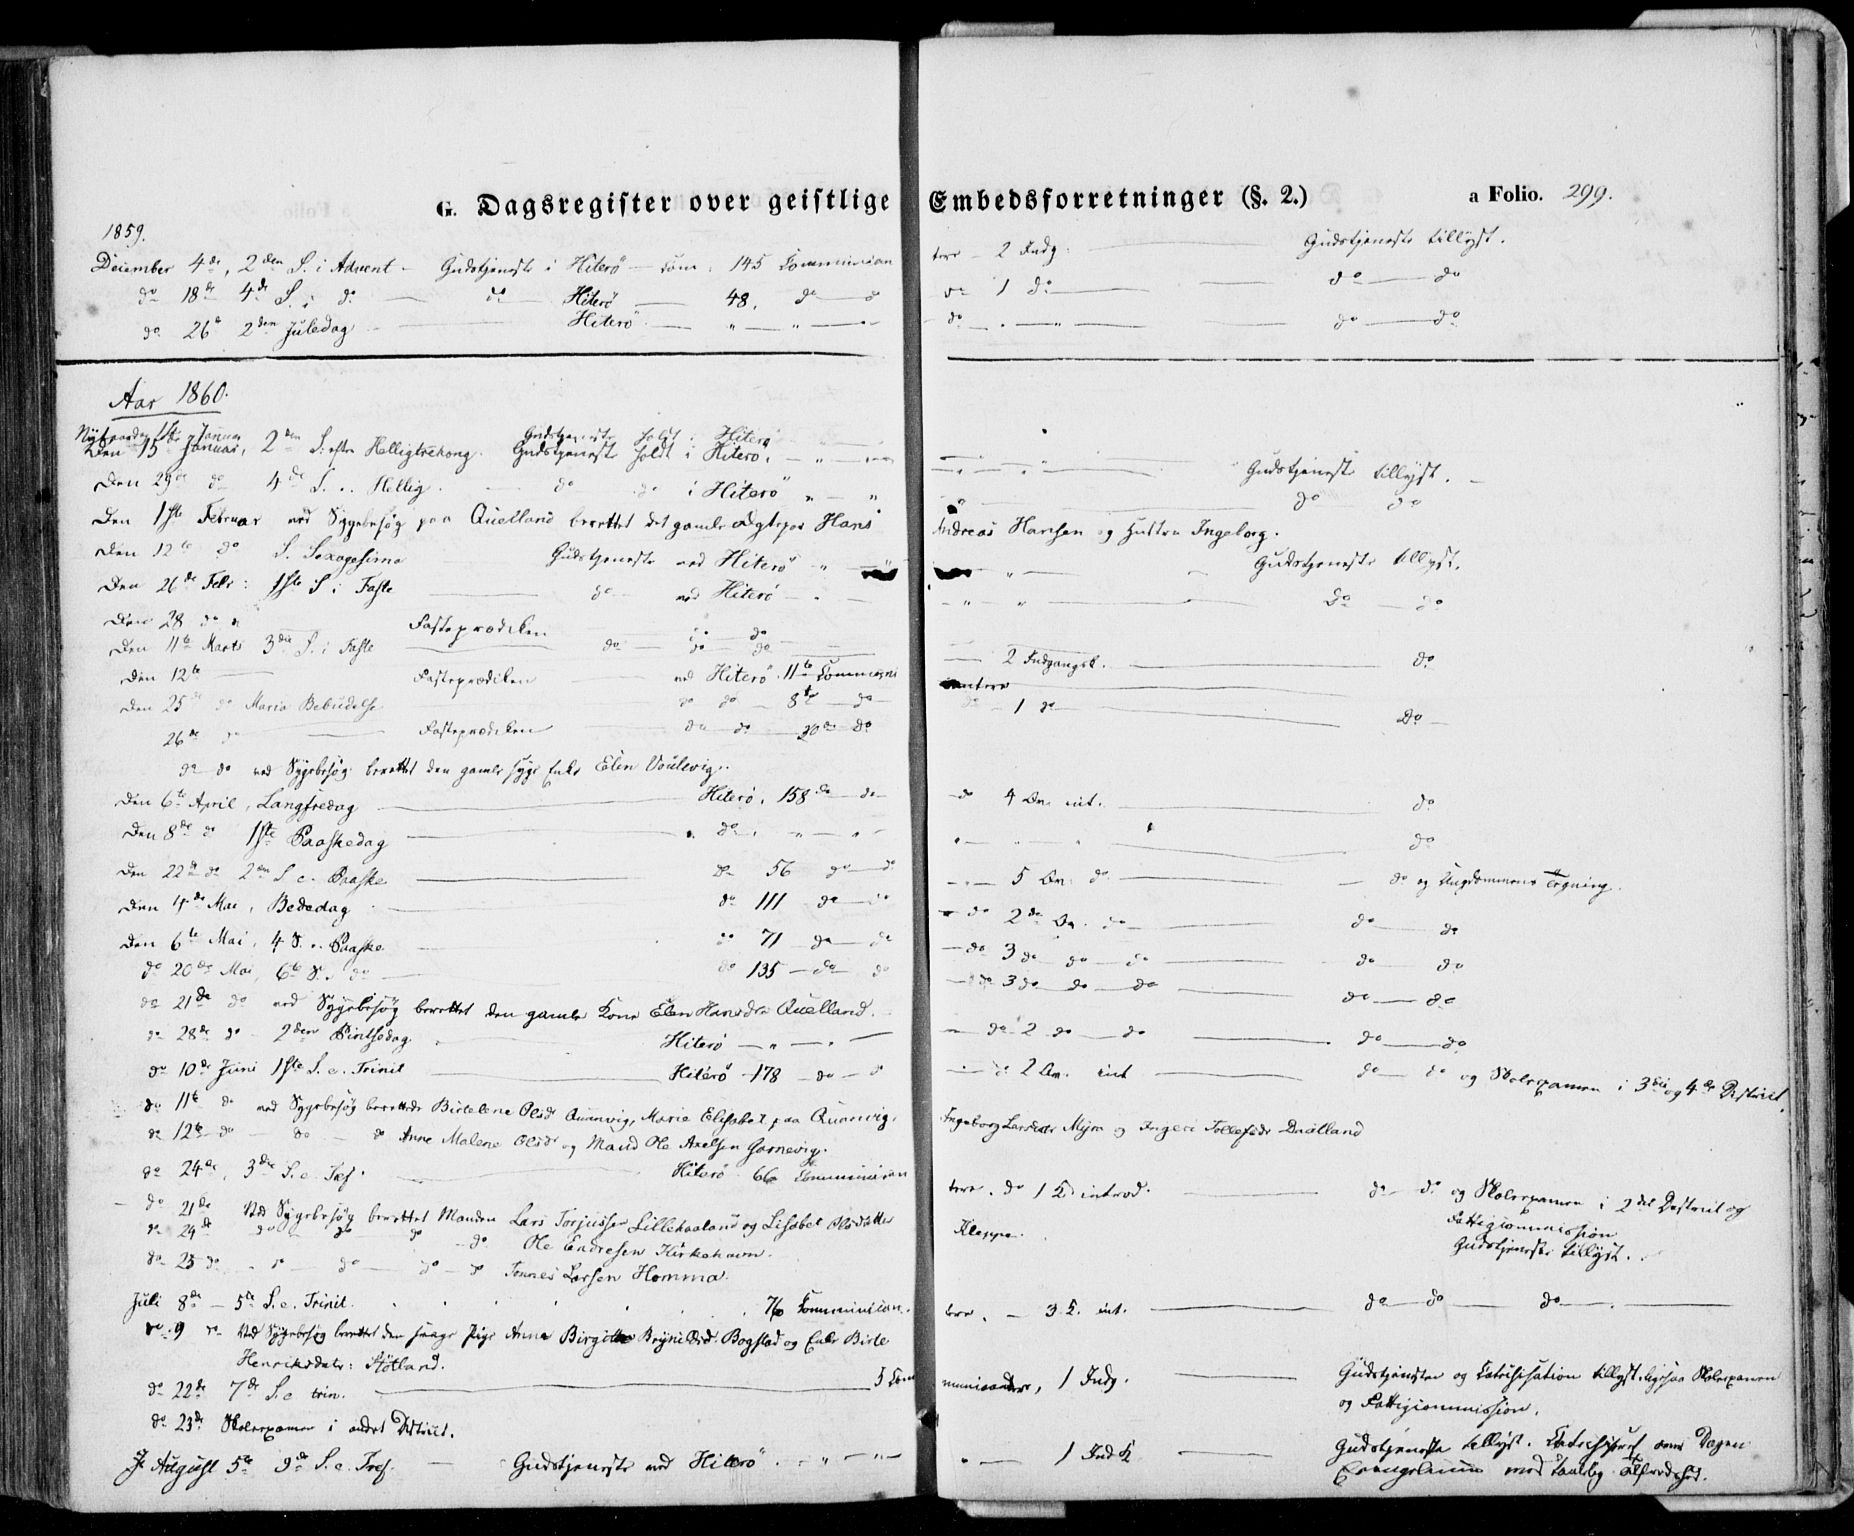 G. Dagsregister over geistlige Embedsforretninger (§. 2.) a Folio. 299.
1859.
December 4de, 2den S. i Advent - Gudstjeneste i Hiterö - Com: 145 Communican tere - 2 Indg. Gudstjeneste tillyst.
do 18de 4de S. i do do Hiterö 48. do do 1 do do do
do 26de 2den Juledag Hiterö " " do " " do do
Aar 1860.
Nytaarsdag 1ste Januar Gudstjeneste holdt i Hiterö
Den 15de Januar, 2den S. efter Helligtrekong. Gudstjeneste holdt i Hiterö. " Gudstjeneste tillyst.
Den 29de do 4de S. e. Hellig. do do i Hiterö " " do do
Den 1ste Februar ved Sygebesög paa Quelland berettet det gamle Ægtepar Hans Andreas Hansen og Hustru Ingeborg.
Den 12te do S. Sexagesima Gudstjeneste ved Hiterö " " Gudstjeneste tillyst.
Den 26de Febr: 1ste S. i Faste do ved Hiterö " " do do
Den 28 do Fasteprædiken do do
Den 11te Marts 3die S. i Faste do do do 2 Indgangsk. do
Den 12te Fasteprædiken ved Hiterö 11te Communi cantere
Den 25de do Maria Bebudelse do do 8te do do 1 do Do
26de do Fasteprædiken do do 20de do
do do ved Sygebesög berettet den gamle syge Enke Elen
Den 6te April, Langfredag Hiterö. 158 do do do 4 int. do
Den 8de do 1ste Paaskedag do " " do
Den 22de do 2den S. e. Paaske do 56 do do 5 do do og Ungdommens Tegning.
Den 4de Mai, Bededag do 111 do do do 2 do do do
Den 6te Mai, 4 S. e. Paaske do 71 do do do 3 do do do do do
do 20de Mai, 6te S. e. do do 135 do do do 3 do do do do do
do 21de do ved Sygebesög berettet den gamle Kone Elen Hansdr Quelland.
do 28de do 2den Pintsedag Hiterö " " do 2 do do do do
do 10de Juni 1ste S. e. Trinit Hiterö 178 do do 2 int do do og Skolexamen i 3die og 4de District.
do 11te do ved Sygebesög berettede Birtelene Olsdr Quanvig, Marie Elisabet paa Quanvig, Ingeborg Larsdatr Myra og Ingeri Tollefsdr
do 12te do do do Anne Malene Olsdr og Mand Ole Axelsen Garnevig.
do 24de, 3die S. e. Tref. Hiterö 66 Communican tere. do 1 K. introd. do do og Skolexamen i 2det District og
Fattigcommission
Gudstjeneste tillyst.
do 21de Ved Sygebesög berettet Manden Lars Torjussen Lillehaaland og Lisabet Olsdatter Kleppe.
do 24de do do do do Ole Endresen Kirkehavn.
do 25 do do do do do Tønnes Larsen Homma.
Juli 8de 5te S. e. Trinit. 76 Communican tere. 3 K. int. do do do
do 9 do Ved Sygebesög berettet den svage Pige Anne Birgitte Bogstad og Enke Birte
Henriksdatr: Stötland.
do 22de 7de S. e. trin. 5 Com municantere, 1 Indg. Gudstjenesten og Catechisation tillyst. ligesaa Skolexamen
og Fattigcommission.
do 23de Skolexamen i andet District.
August 5te 9de S. e. Tref. Gudstjeneste ved Hiterö " " 1 Ind K. Gudstjeneste tillyst. Catechiseret over Dagens
Evangelium med